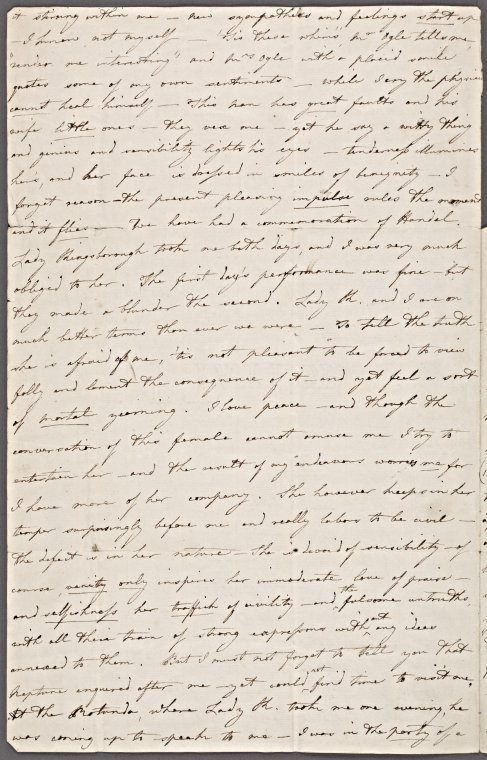 it strong within me — new sympathies and feelings start up
— I know not myself — "'Tis these whims", Mr Ogle tells me,
"render me interesting" and Mrs Ogle with a placid smile
quotes some of my own sentiments — while I cry the physician
cannot heal himself — This man has great faults and his
wife little ones — they vex me — yet he say a witty thing
and genius and sensibility lights his eyes — tenderness illumines
hers, and her face is dressed in smiles of benignity — I
forget reason — the present pleasing impulse rules the moment
and it flies — We have had a commemoration of Handel.
Lady Kingsborough took me both days, and I was very much
obliged to her. The first day's performance was fine — but
they made a blunder the second. Lady K. and I are on
much better terms than ever we were — To tell the truth
she is afraid of me, 'tis not pleasant to be forced to view
folly and lament the consequence of it — and yet feel a sort
of mortal yearning. I love peace — and though the
conversation of this female cannot amuse me I try to
entertain her — and the result of my endeavors worries me for
I have more of her company. She however keeps in her
temper surprisingly before me and really labors to be civil —
the defect is in her nature — She is devoid of sensibility — of
course, vanity only inspires her immoderate love of praise —
and selfishness her traffick of civility — and the fulsome untruths,
with all their train of strong expressions without any ideas
annexed to them. But I must not forget to tell you that
Neptune enquired after me — yet could not find time to visit me,
At the Rotunda, where Lady K. took me one evening, he
was coming up to speak to me — I was in the party of a